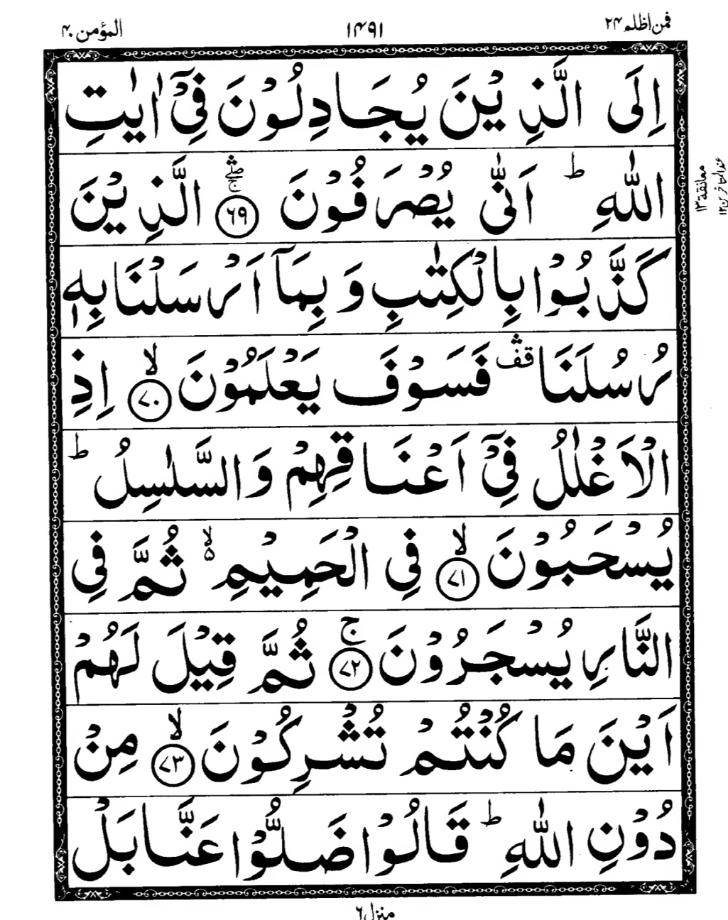 فمن اظلم ٢٤
١٤٩١
المؤمن ٤٠
اِلَى الَّذِيْنَ يُجَادِلُوْنَ فِيْٓ اٰيٰتِ
اللّٰهِ ؕ اَنّٰى يُصْرَفُوْنَ ۛۚ ﴿٦٩﴾ الَّذِيْنَ
كَذَّبُوْا بِالْكِتٰبِ وَ بِمَاۤ اَرْسَلْنَا بِهٖ
رُسُلَنَا ۛ۟ فَسَوْفَ يَعْلَمُوْنَ ۙ﴿٧٠﴾ اِذِ
الْاَغْلٰلُ فِيْٓ اَعْنَاقِهِمْ وَالسَّلٰسِلُ ؕ
يُسْحَبُوْنَ ۙ﴿٧١﴾ فِي الْحَمِيْمِ ۙ۬ ثُمَّ فِي
النَّارِ يُسْجَرُوْنَ ۚ﴿٧٢﴾ ثُمَّ قِيْلَ لَهُمْ
اَيْنَ مَا كُنْتُمْ تُشْرِكُوْنَ ۙ﴿٧٣﴾ مِنْ
دُوْنِ اللّٰهِ ؕ قَالُوْا ضَلُّوْا عَنَّا بَلْ
معانقة ١٣
منزل ٦